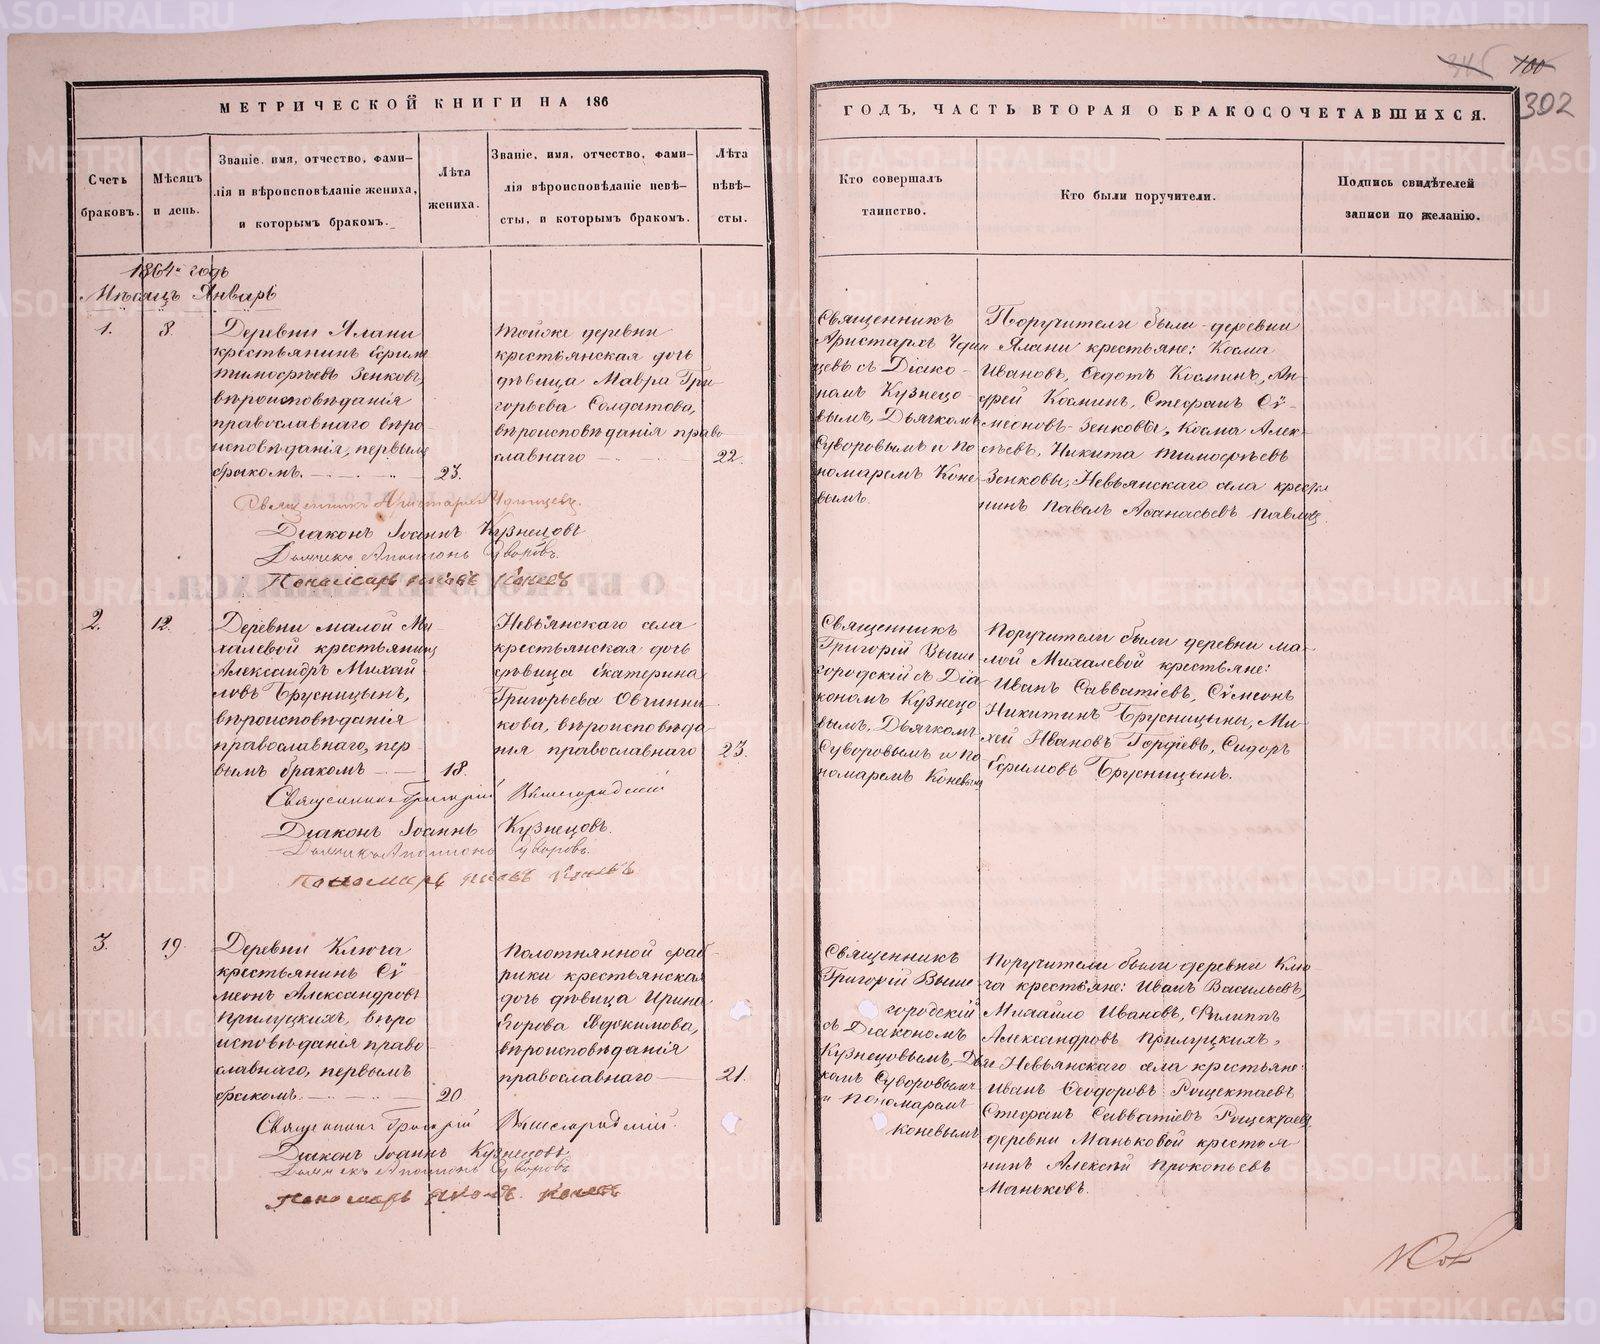 МЕТРИЧЕСКОЙ КНИГИ НА 186
ГОДЪ, ЧАСТЬ ВТОРАЯ О БРАКОСОЧЕТАВШИХСЯ.
302
Счетъ
браковъ.
Мѣсяцъ
и день.
Званіе, имя, отчество, фами-
лія и вѣроисповѣданіе жениха,
и которымъ бракомъ.
Лѣта
жениха.
Званіе, имя, отчество, фами-
лія вѣроисповѣданіе невѣ-
сты, и которымъ бракомъ.
Лѣта
нѣвѣ-
сты.
Кто совершалъ
таинство.
Кто были поручители.
Подпись свидѣтелей
записи по желанію.
1864 годъ
Мѣсяцъ Январь
1.
8.
Деревни Ялани
крестьянинъ
Тимофѣевъ Зенковъ,
вѣроисповѣданія
православнаго вѣро
исповѣданія, первымъ
бракомъ.
23.
тойже деревни
крестьянская дочь
дѣвица Мавра Гри-
горьева Солдатова,
вѣроисповѣданія право-
славнаго
22.
Священникъ
Аристархъ Удин
цевъ съ Діако-
номъ Кузнецо-
вымъ, Дьячкомъ
Суворовымъ и По
номаремъ Коне
вымъ.
Поручители были деревни
Ялани крестьяне: Косма
Ивановъ, Федотъ Косминъ, Ан-
дрей Косминъ, Стефанъ Сѵ-
меоновъ Зенковы, Косма Алек-
сѣевъ, Никита Тимофѣевъ
Зенковы, Невьянскаго села крестья
нинъ Павелъ Афанасьевъ
Священникъ Аристархъ Удинцевъ.
Діаконъ Іоаннъ Кузнецовъ
Дьячекъ Аполлонъ Суворовъ.
Пономарь Іаковъ Коневъ
2.
12.
Деревни малой Ми
халевой крестьянинъ
Александръ Михай
ловъ Брусницынъ,
вѣроисповѣданія
православнаго, пер-
вымъ бракомъ
18.
Невьянскаго села
крестьянская дочь
дѣвица Екатерина
Григорьева Овчинни
кова, вѣроисповѣда-
нія православнаго
23.
Священникъ
Григорій Выше
городскій съ Діа
кономъ Кузнецо
вымъ, Дьячкомъ
Суворовымъ и По
номаремъ Коневымъ
Поручители были деревни ма-
лой Михалевой крестьяне:
Иванъ Савватіевъ, Сѵмеонъ
Никитинъ Брусницыны, Ми-
хей Ивановъ Гордѣевъ, Сидоръ
Ефимовъ Брусницынъ.
Священникъ Григорій Вышегородскій
Діаконъ Іоаннъ Кузнецовъ.
Дьячекъ Аполлонъ Суворовъ.
Пономарь Іаковъ Коневъ
3.
19.
Деревни Ключа
крестьянинъ Сѵ
меонъ Александровъ
Прилуцкихъ, вѣро
исповѣданія право
славнаго, первымъ
бракомъ.
20
Полотнянной фаб-
рики крестьянская
дочь дѣвица Ирина
Егорова Евдокимова,
вѣроисповѣданія
православнаго
21.
Священникъ
Григорій Выше
городскій
съ Діакономъ
Кузнецовымъ, Дья
комъ Суворовымъ
и Пономаремъ
Коневымъ
Поручители были деревни Клю
ча крестьяне: Иванъ Васильевъ,
Михайло Ивановъ, Филиппъ
Александровъ Прилуцкихъ,
и Невьянскаго села крестьяне:
Иванъ Феодоровъ Рощектаевъ
Стефанъ Савватіевъ Рощектаевъ
деревни Маньковой крестья
нинъ Алексѣй Прокопьевъ
Маньковъ.
Священникъ Григорій Вышегородскій.
Діаконъ Іоаннъ Кузнецовъ
Дьячекъ Аполлонъ Суворовъ
Пономарь Іаковъ Коневъ
METRIKI.GASO-URAL.RU